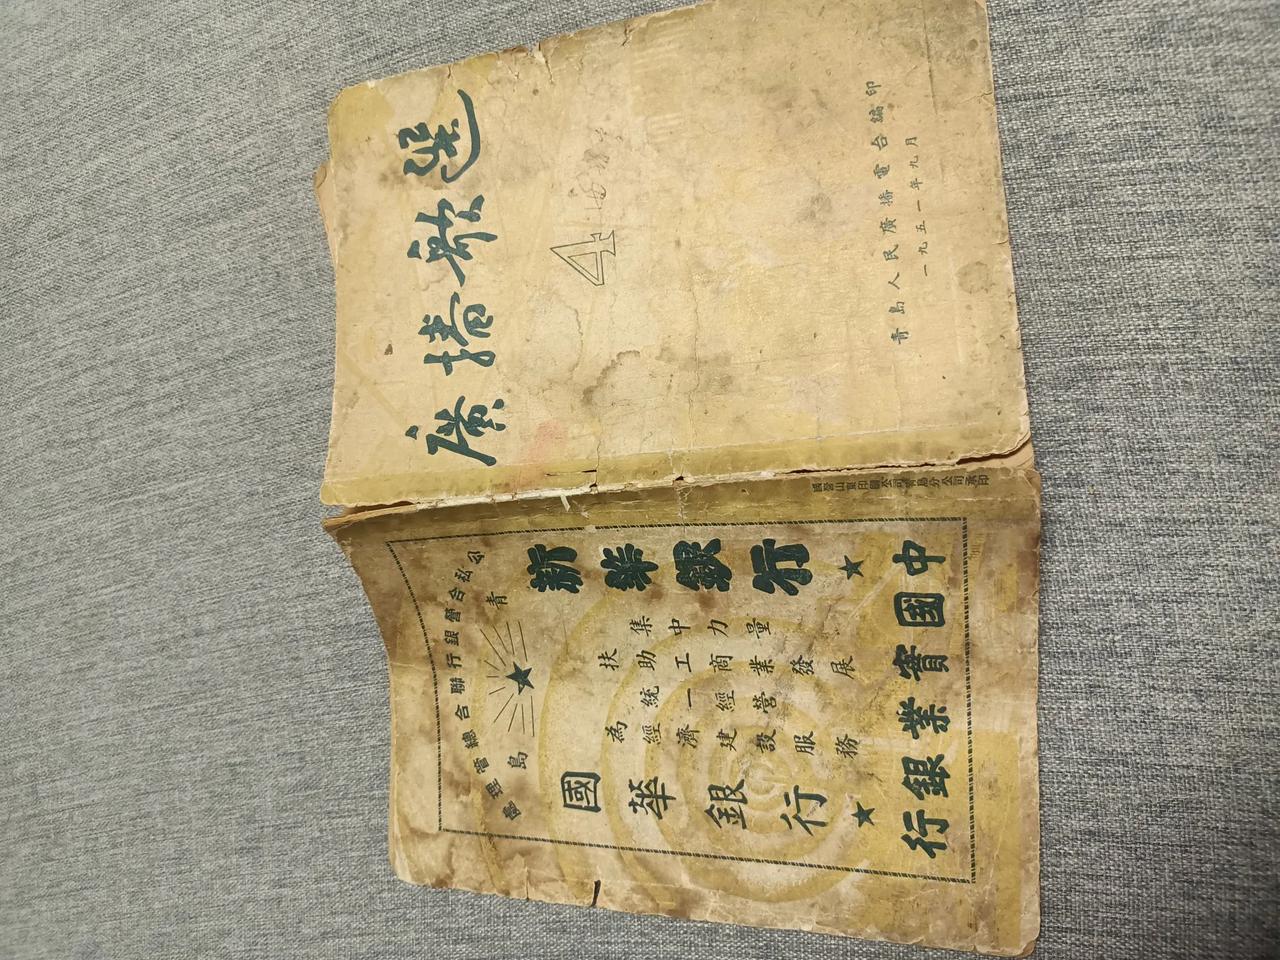 廣播歌選
4
青島人民廣播電台編印
一九五一年九月
國營山東印刷公司青島分公司承印
公私合營銀行聯合總管理處
青島
新華銀行
集中力量
扶助工商業發展
統一經營
為經濟建設服務
國華銀行
中國實業銀行